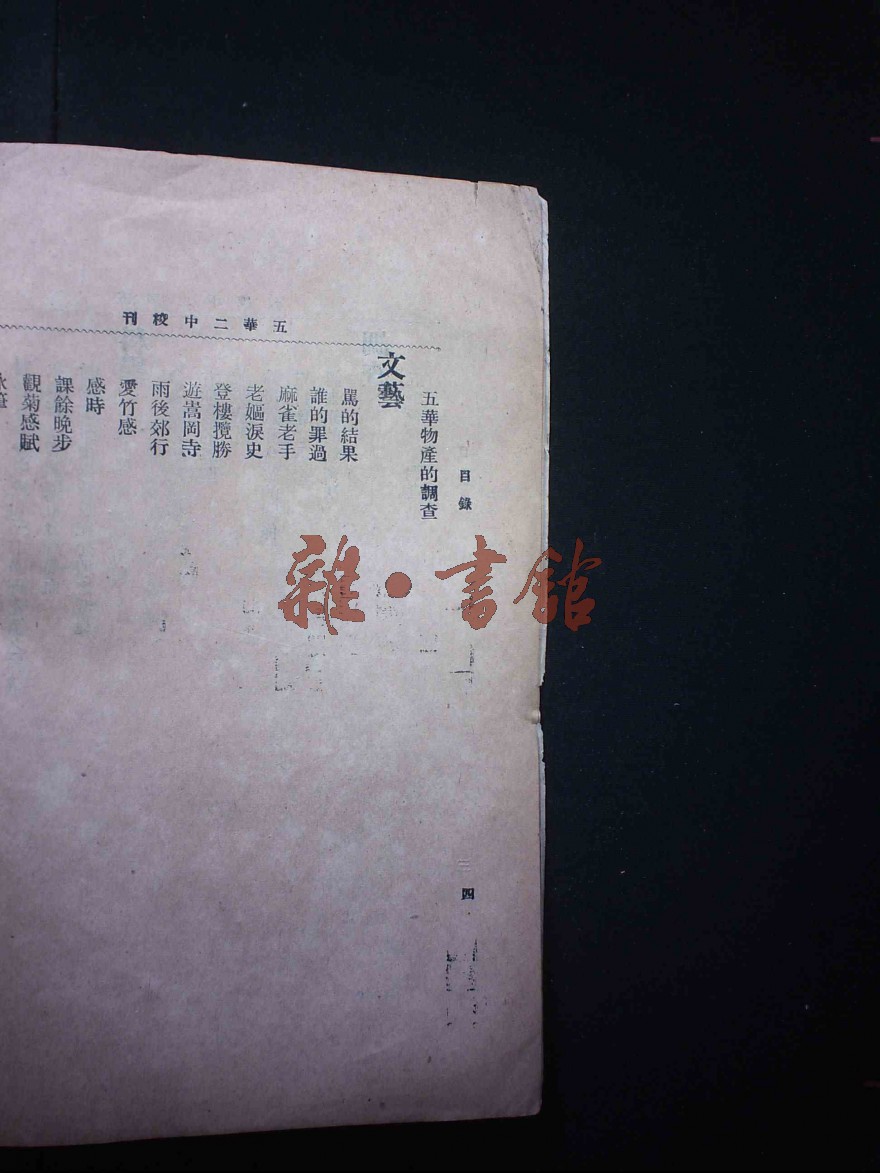 五華二中校刊
目錄
四
五華物產的調查
文藝
罵的結果
誰的罪過
麻雀老手
老嫗淚史
登樓攬勝
遊嵩岡寺
雨後郊行
愛竹感
感時
課餘晚步
觀菊感賦
雜·書館